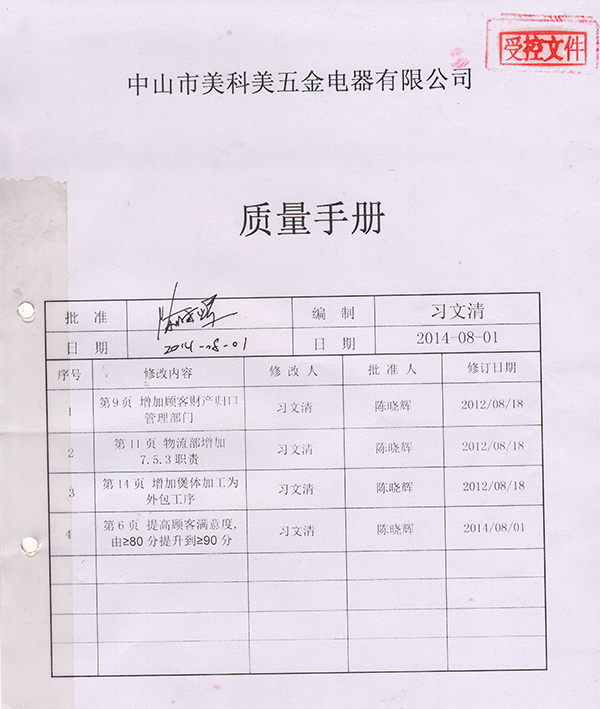 受控文件
中山市美科美五金电器有限公司
质量手册
批 准 编 制 习文清
日 期 2014-08-01 日 期 2014-08-01
序号 修改内容 修 改 人 批 准 人 修订日期
1 第9页 增加顾客财产归口 习文清 陈晓辉 2012/08/18
管理部门
2 第11页 物流部增加 习文清 陈晓辉 2012/08/18
7.5.3 职责
3 第14页 增加煲体加工为 习文清 陈晓辉 2012/08/18
外包工序
4 第6页 提高顾客满意度, 习文清 陈晓辉 2014/08/01
由≥80分提升到≥90分